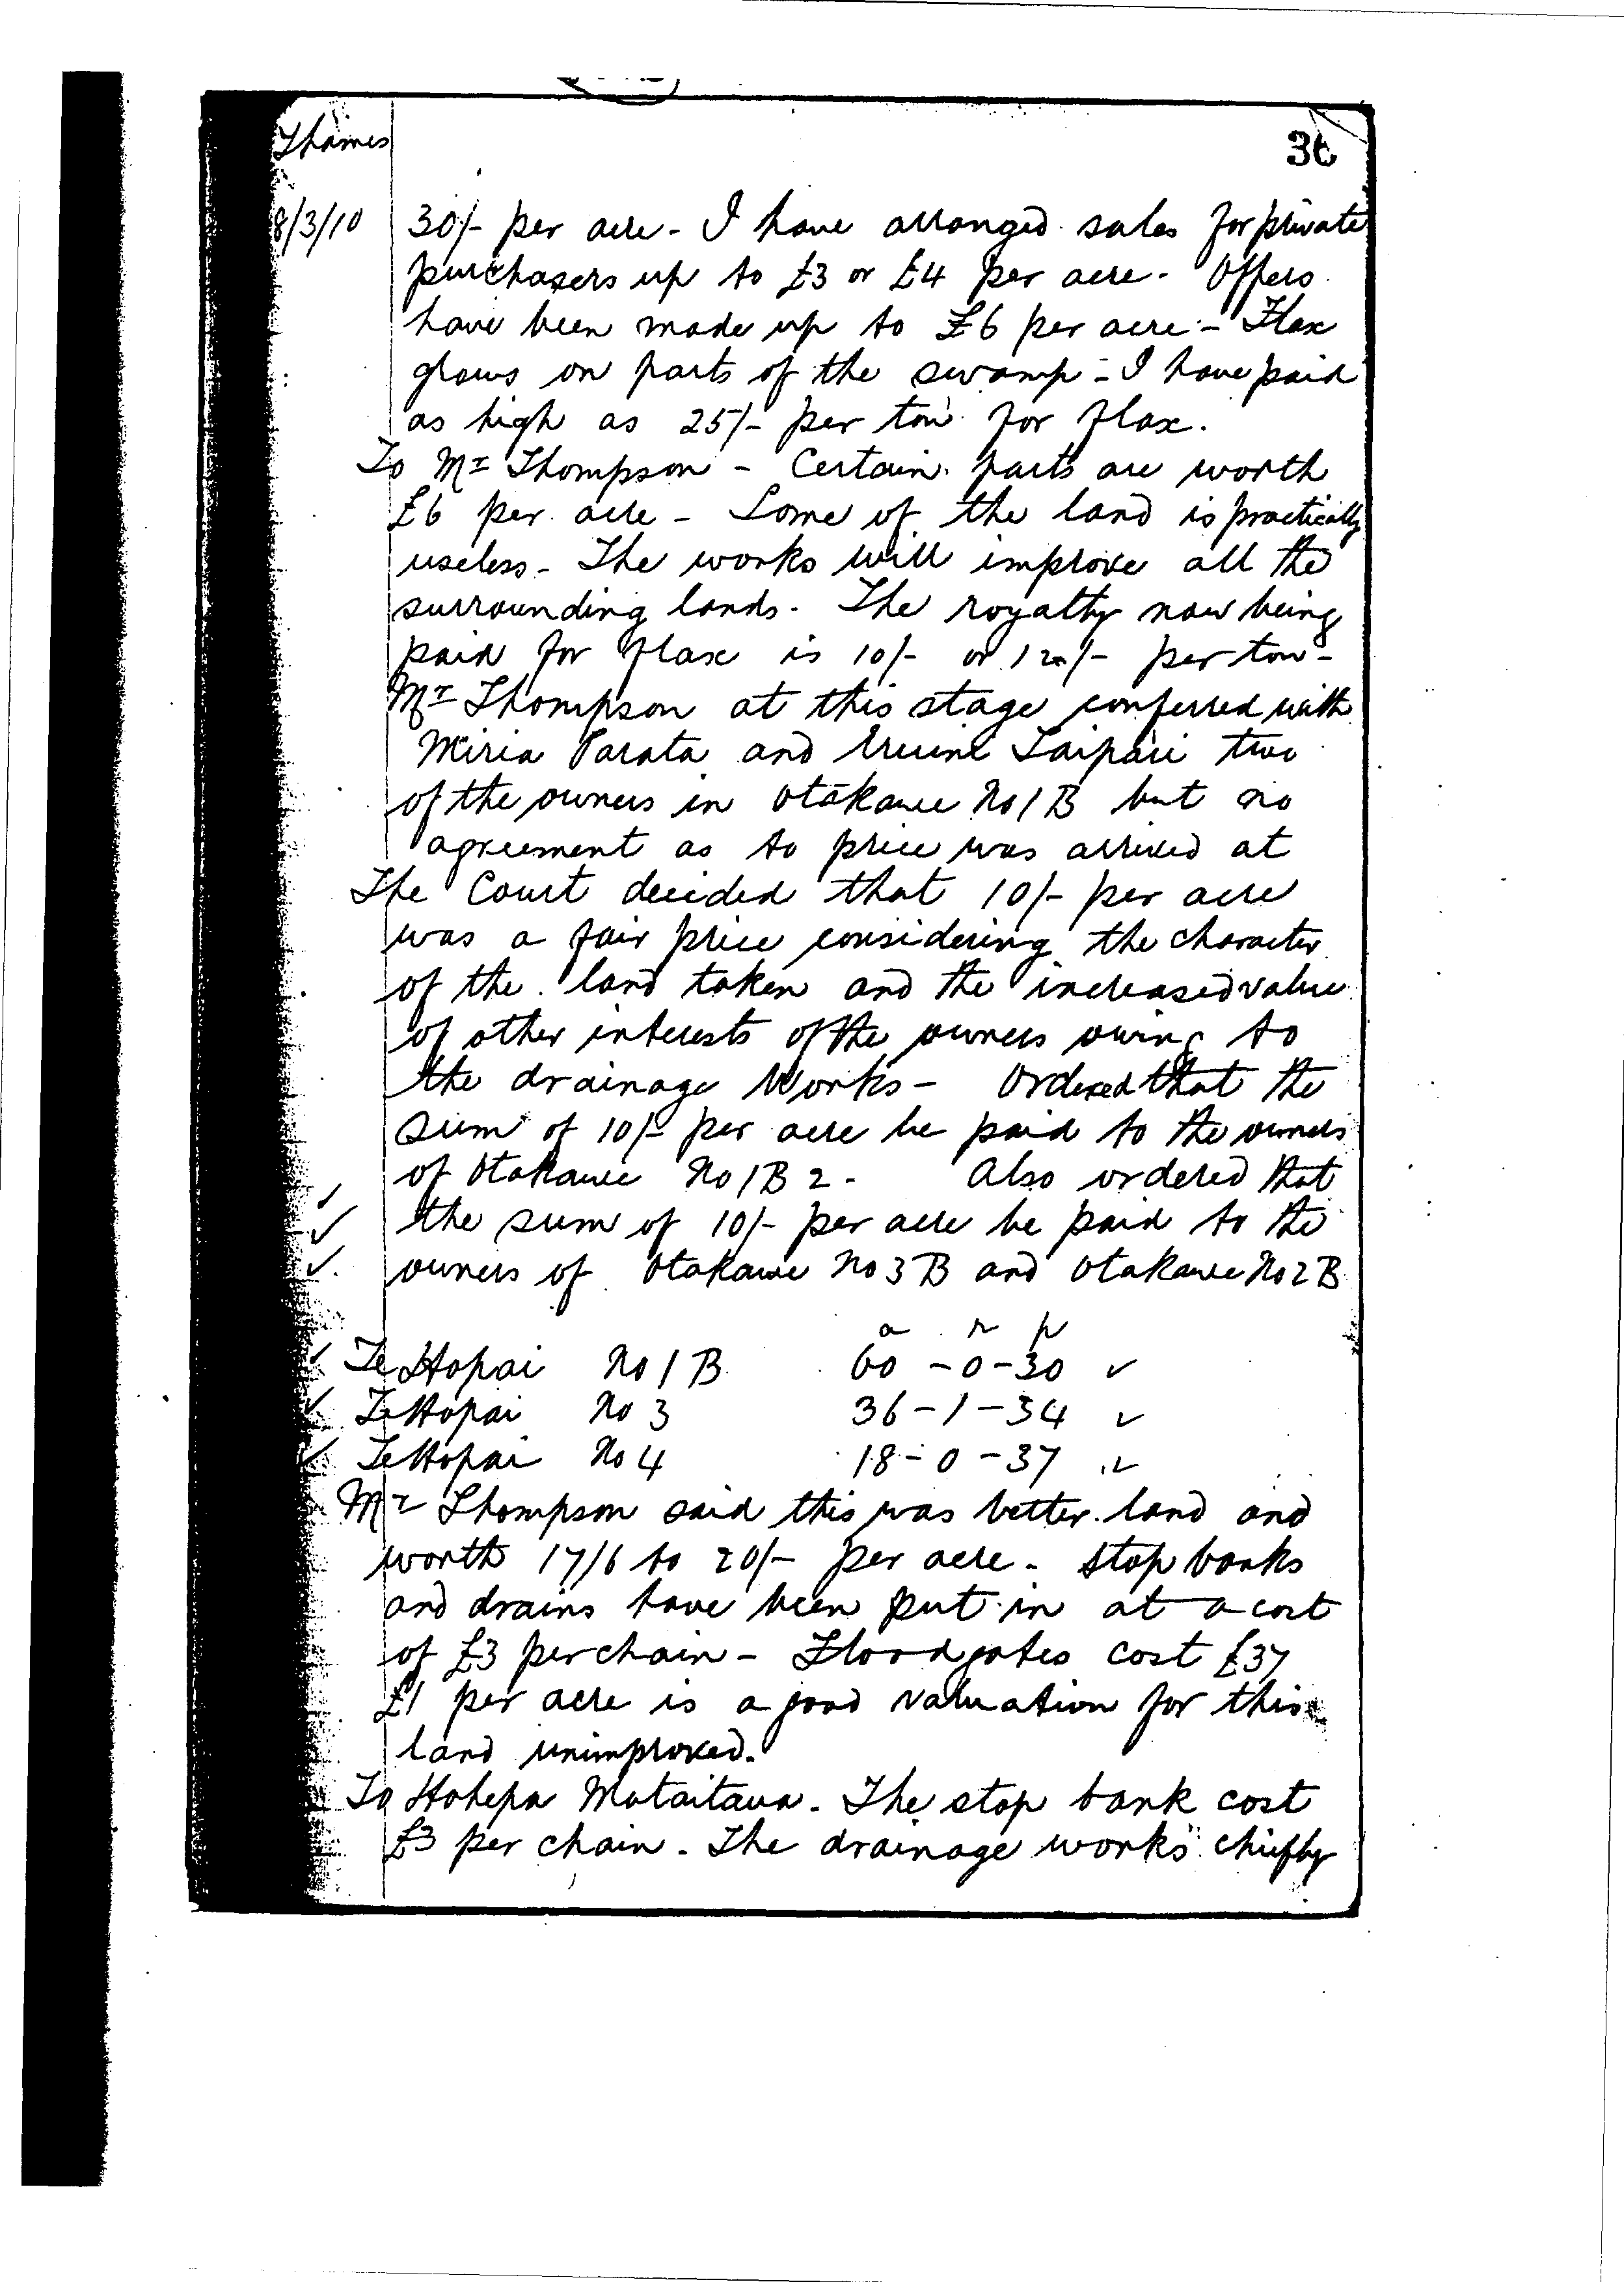 Thames
36
8/3/10
30/- per acre - I have arranged sales for private
purchasers up to £3 or £4 per acre - Offers
have been made up to £6 per acre - Flax
grows on parts of the swamp - I have paid
as high as 25/- per ton for flax.
To Mr Thompson - Certain parts are worth
£6 per acre - Some of the land is practically
useless - The works will improve all the
surrounding lands. The royalty now being
paid for flax is 10/- or 12/- per ton -
Mr Thompson at this stage conferred with
Miria Parata and Eruini Taipari two
of the owners in Otakawe No 1B but no
agreement as to price was arrived at
The Court decided that 10/- per acre
was a fair price considering the character
of the land taken and the increased value
of other interests of the owners owing to
the drainage Works - Ordered that the
sum of 10/- per acre be paid to the owners
of Otakawe No 1B 2 - Also ordered that
the sum of 10/- per acre be paid to the
owners of Otakawe No 3B and Otakawe No 2B
a r p
Te Hopai No 1B 60 - 0 - 30 ✓
Te Hopai No 3 36 - 1 - 34 ✓
Te Hopai No 4 18 - 0 - 37 ✓
Mr Thompson said this was better land and
worth 17/6 to 20/- per acre - Stop banks
and drains have been put in at a cost
of £3 per chain - Floodgates cost £37
£1 per acre is a good valuation for this
land unimproved.
To Hohepa Mataitaua. The stop bank cost
£3 per chain. The drainage works chiefly